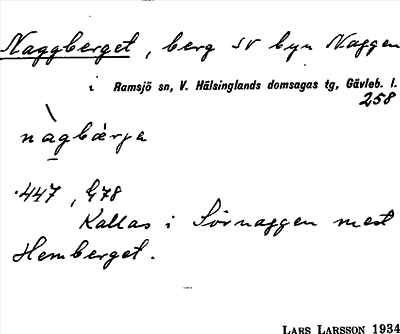 Naggberget, berg SV byn Naggen
i Ramsjö sn, V. Hälsinglands domsagas tg, Gävleb. l.
258
nàgbærja
447, 478
Kallas i Sörnaggen mest
Hemberget.
LARS LARSSON 1934